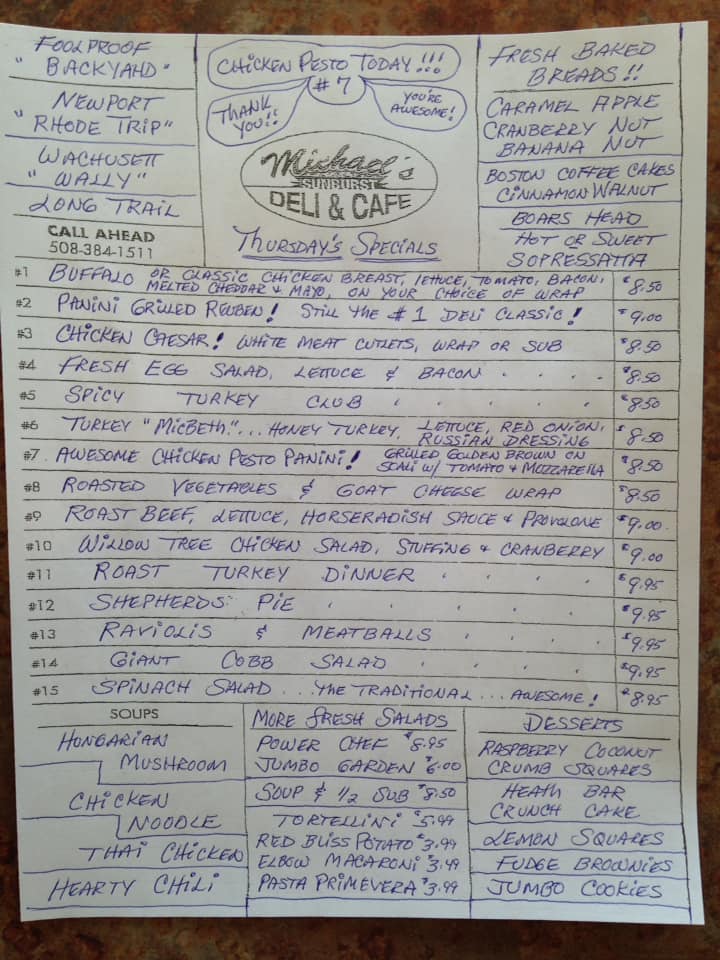 FOOLPROOF
"BACKYAHD"
NEWPORT
"RHODE TRIP"
WACHUSETT
"WALLY"
LONG TRAIL
CALL AHEAD
508-384-1511
CHICKEN PESTO TODAY!!!
#7
THANK YOU!!
YOU'RE AWESOME!
Michael's
SUNBURST
DELI & CAFE
THURSDAY'S SPECIALS
FRESH BAKED
BREADS!!
CARAMEL APPLE
CRANBERRY NUT
BANANA NUT
BOSTON COFFEE CAKES
CINNAMON WALNUT
BOARS HEAD
HOT OR SWEET
SOPRESSATTA
#1 BUFFALO OR CLASSIC CHICKEN BREAST, LETTUCE, TOMATO, BACON,
MELTED CHEDDAR & MAYO, ON YOUR CHOICE OF WRAP $8.50
#2 PANINI GRILLED REUBEN! STILL THE #1 DELI CLASSIC! $9.00
#3 CHICKEN CAESAR! WHITE MEAT CUTLETS, WRAP OR SUB $8.50
#4 FRESH EGG SALAD, LETTUCE & BACON . . . . $8.50
#5 SPICY TURKEY CLUB . . . . $8.50
#6 TURKEY "MICBETH"... HONEY TURKEY, LETTUCE, RED ONION,
RUSSIAN DRESSING $8.50
#7 AWESOME CHICKEN PESTO PANINI! GRILLED GOLDEN BROWN ON
SCALI W/ TOMATO & MOZZARELLA $8.50
#8 ROASTED VEGETABLES & GOAT CHEESE WRAP $8.50
#9 ROAST BEEF, LETTUCE, HORSERADISH SAUCE & PROVOLONE $9.00
#10 WILLOW TREE CHICKEN SALAD, STUFFING & CRANBERRY $9.00
#11 ROAST TURKEY DINNER . . . . $9.95
#12 SHEPHERDS PIE . . . . . $9.95
#13 RAVIOLIS & MEATBALLS . . . . $9.95
#14 GIANT COBB SALAD . . . . $9.95
#15 SPINACH SALAD...THE TRADITIONAL...AWESOME! $8.95
SOUPS
HUNGARIAN
MUSHROOM
CHICKEN
NOODLE
THAI CHICKEN
HEARTY CHILI
MORE FRESH SALADS
POWER CHEF $8.95
JUMBO GARDEN $6.00
SOUP & 1/2 SUB $8.50
TORTELLINI $5.99
RED BLISS POTATO $3.99
ELBOW MACARONI $3.99
PASTA PRIMEVERA $3.99
DESSERTS
RASPBERRY COCONUT
CRUMB SQUARES
HEATH BAR
CRUNCH CAKE
LEMON SQUARES
FUDGE BROWNIES
JUMBO COOKIES